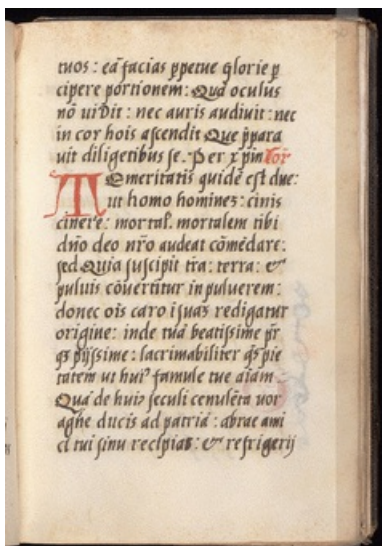 tuos : eā facias ꝑpetue glorie ꝑ
cipere portionem : Quā oculus
nō uidit : nec auris audiuit : nec
in cor hois ascendit Que p̄para
uit diligētibus se. Per xp̄m Or̄
Temeritatis quidē est dn̄e :
ut homo hominez : cinis
cinere : mortal̄. mortalem tibi
dn̄o deo nr̄o audeat cōmēdare :
sed Quia suscipit tr̄a : terra : &
puluis cōuertitur in puluerem :
donec ois caro i suaz redigatur
origine : inde tuā beatissime pr̄
qs pijssime : lacrimabiliter qs pie
tatem ut huiꝰ famule tue aīam
Quā de huiꝰ seculi cenulēta uor
agīe ducis ad patriā : abrae ami
ci tui sinu recipias : & refrigerij